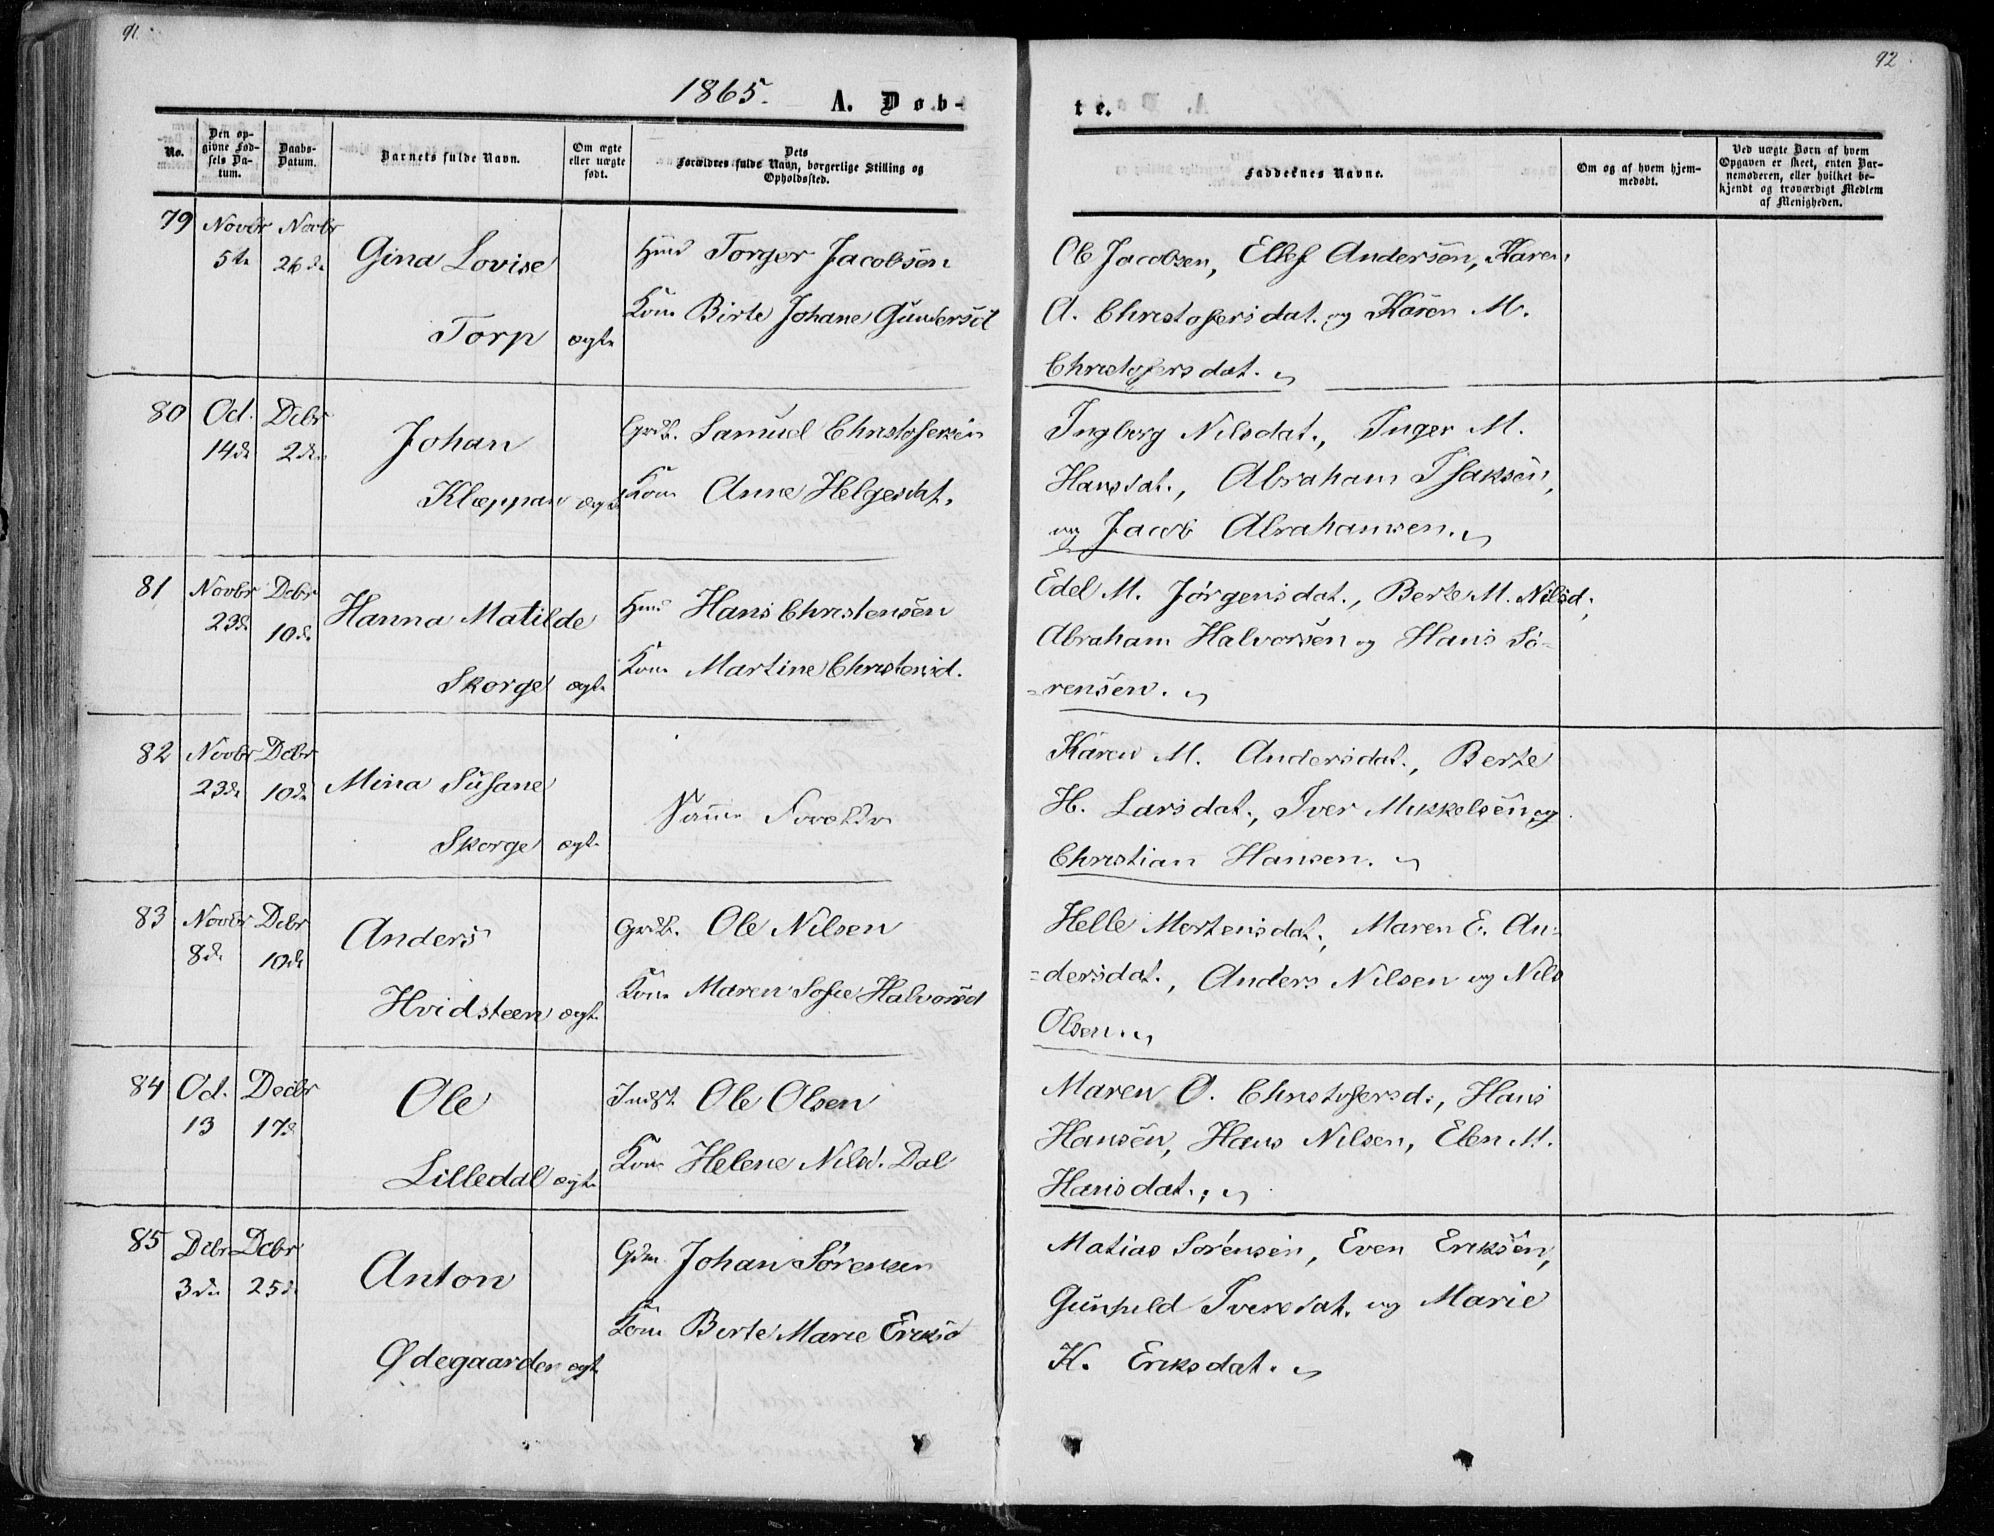 91.
92
1865. A. Døb-
te.
No.
Den op-
givne Fød-
sels Da-
tum.
Daabs-
Datum.
Barnets fulde Navn.
Om ægte
eller uægte
født.
Dets
Forældres fulde Navn, borgerlige Stilling og
Opholdssted.
Faddernes Navne.
Om og af hvem hjem-
medøbt.
Ved uægte Børn af hvem
Opgaven er skeet, enten Bar-
nemoderen, eller hvilket be-
kjendt og troværdigt Medlem
af Menigheden.
79 Novbr Novbr
5te 26de
Gina Lovise
Torp ægte
Hmd Torger Jacobsen
Kone Birte Johane Gundersd
Ole Jacobsen, Ellef Andersen, Karen
A. Christofersdat. og Karen M.
Christofersdat.
80 Oct. Debr
14de 2den
Johan
Klæppan ægte
Grdb. Samuel Christofersen
Kone Anne Helgesdat.
Ingborg Nilsdat., Inger M.
Hansdat., Abraham Isaksen,
og Jacob Abrahamsen.
81 Novbr Debr
23de 10de
Hanna Matilde
Skorge ægte
Hmd Hans Christensen
Kone Martine Christensd.
Edel M. Jørgensdat., Berte M. Nilsd.,
Abraham Halvorsen og Hans Sø-
rensen.
82 Novbr Debr
23de 10de
Mina Susane
Skorge ægte
Samme Forældre
Karen M. Andersdat., Berte
H. Larsdat., Iver Mikkelsen og
Christian Hansen.
83 Novbr Debr
8de 10de
Anders
Hvidsteen ægte
Grdb. Ole Nilsen
Kone Maren Sofie Halvorsd
Helle Mortensdat., Maren E. An-
dersdat., Anders Nilsen og Nils
Olsen.
84 Oct. Decbr
13 17de
Ole
Lilledal ægte
Indst. Ole Olsen
Kone Helene Nilsd. Dal
Maren O. Christofersd., Hans
Hansen, Hans Nilsen, Elen M.
Hansdat.;
85 Debr Debr
3die 25de
Anton
Ødegaarden ægte
Gdm. Johan Sørensen
Kone Berte Marie Eriksd
Matias Sørensen, Even Eriksen,
Gunhild Iversdat. og Marie
K. Eriksdat.